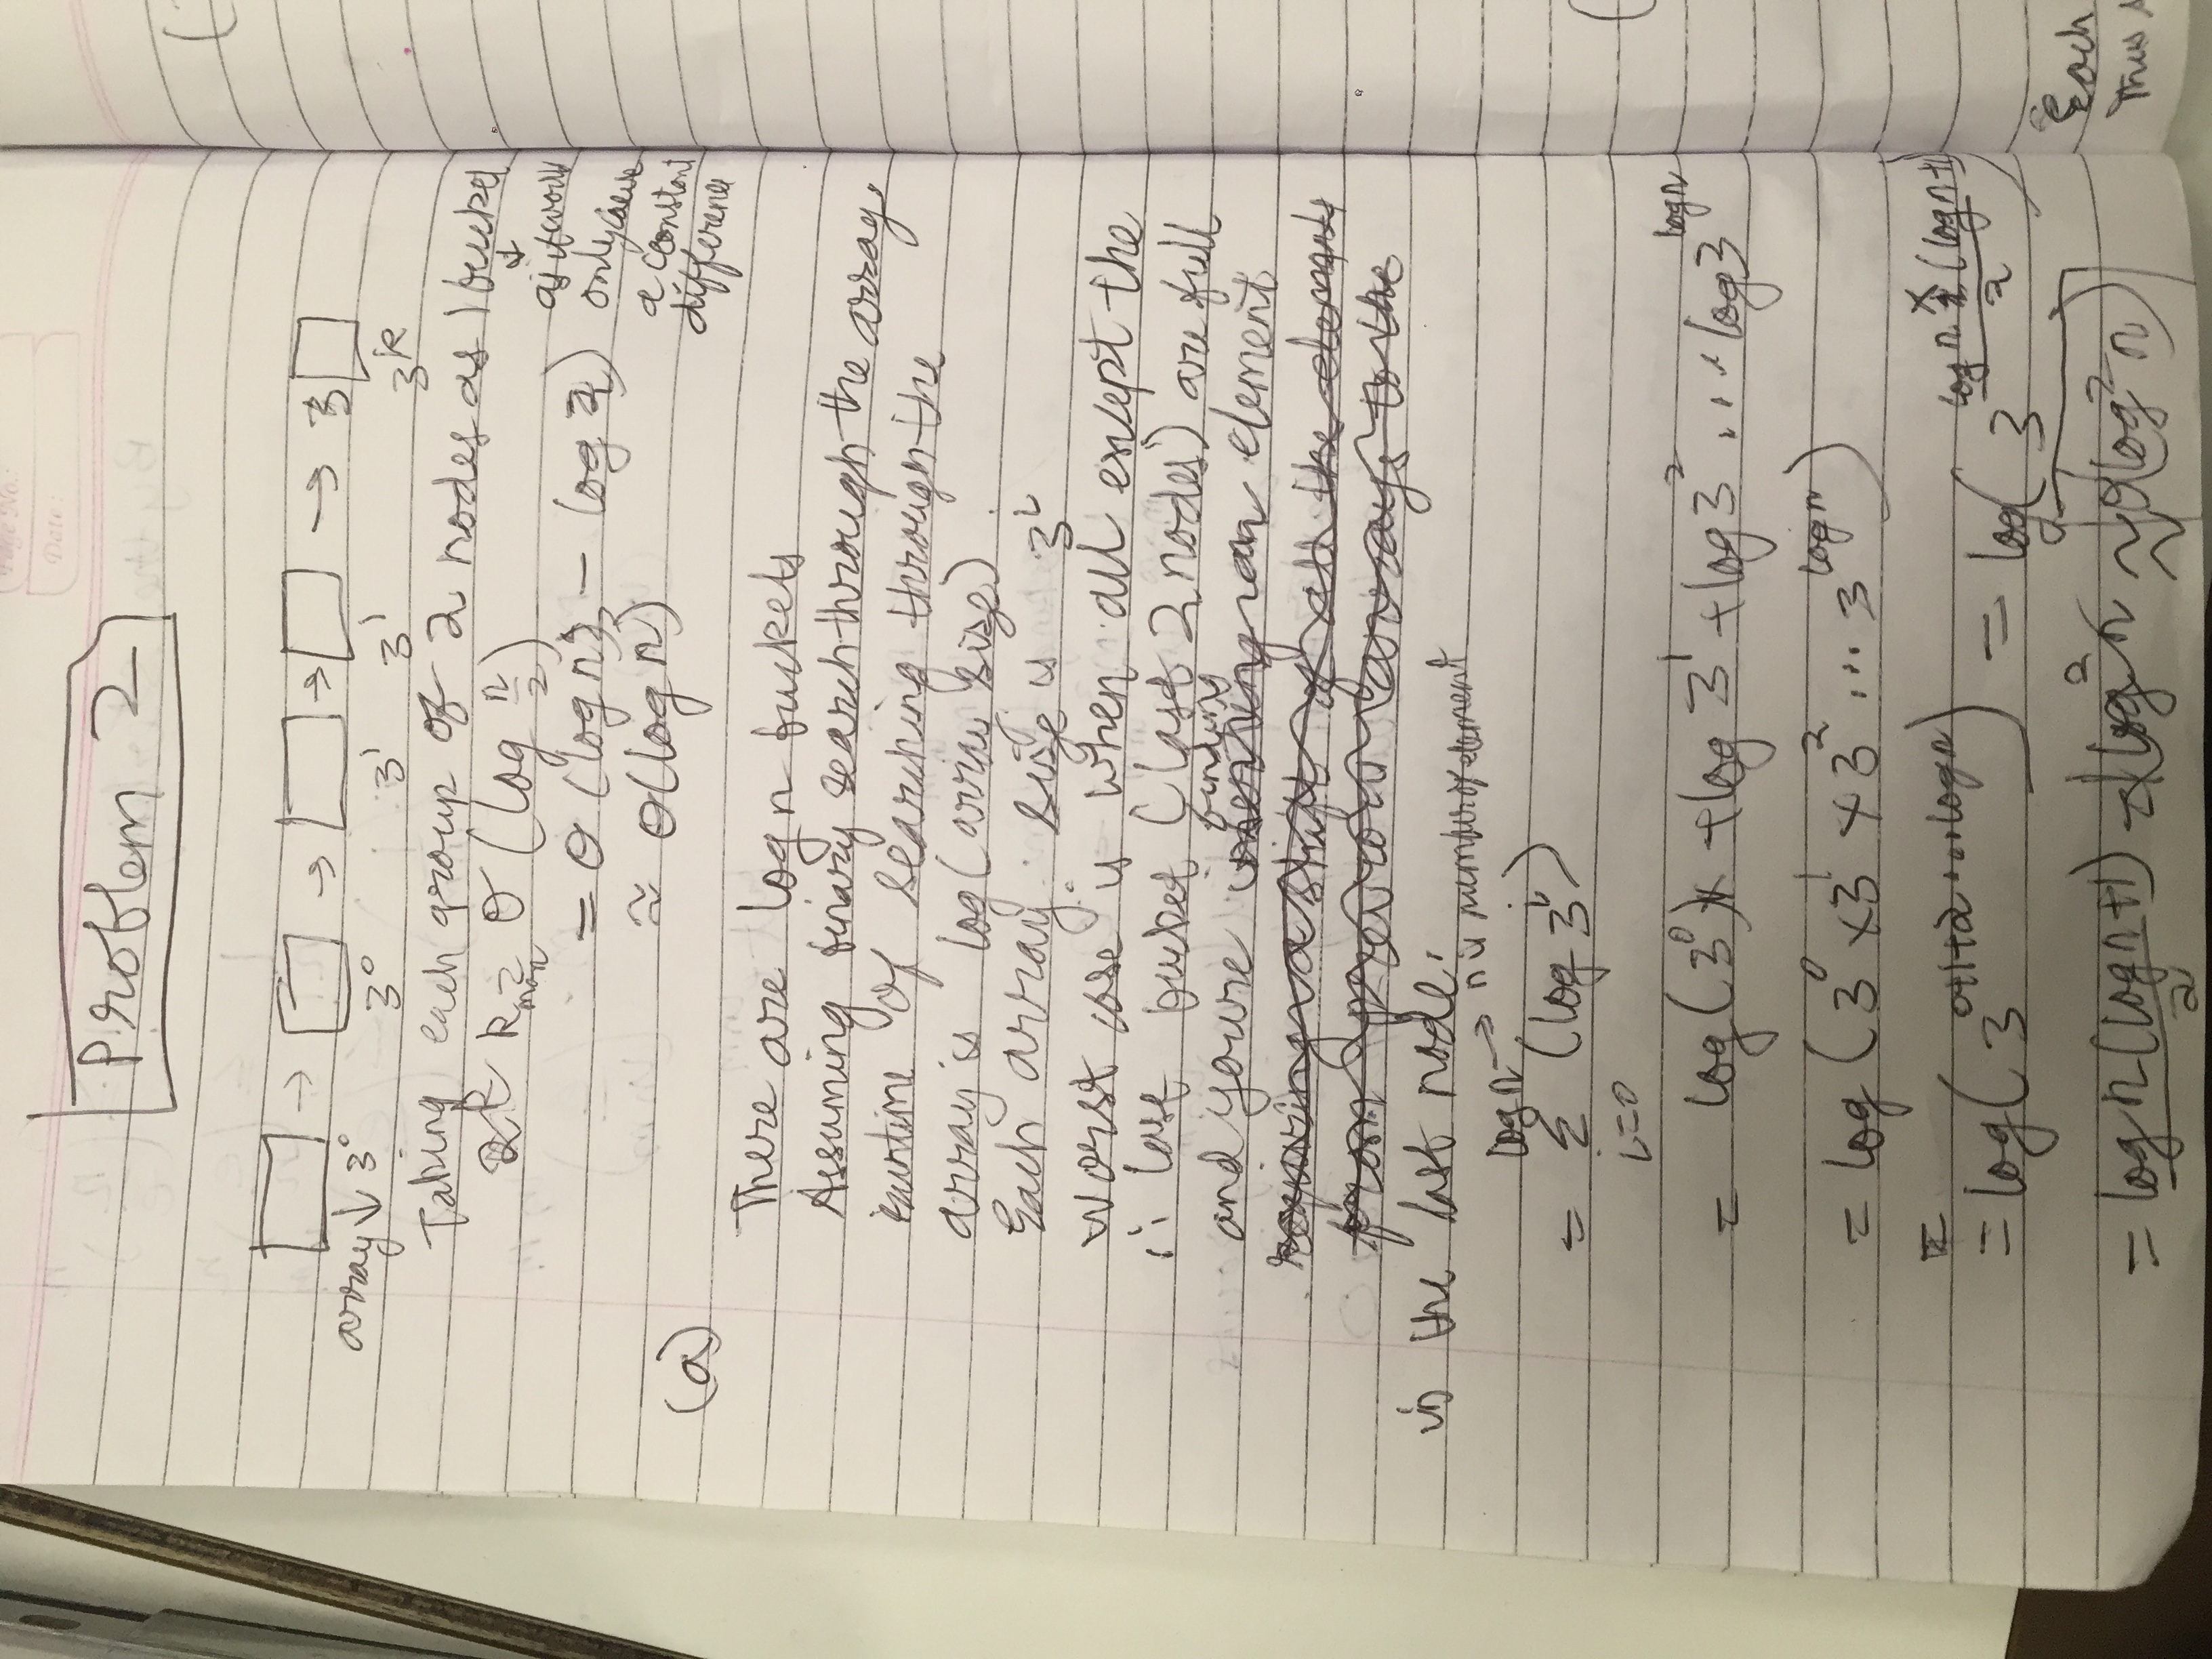 Page No.:
Date:
Problem 2
→ → → → 3
array ↓ 3⁰ 3⁰ 3¹ 3¹ 3ᵏ
Taking each group of 2 nodes as 1 bucket
↓
as it would
only cause
a constant
difference
k max = θ (log n/2)
= θ (log n - log 2)
≈ θ(log n)
(a)
There are log n buckets
Assuming binary search through the array,
runtime of searching through the
array is log(array size).
Each array size is 3ⁱ
Worst case is when all except the
∴ last bucket (last 2 nodes) are full
and youre finding an element
requiring a shift of all the elements
from previous arrays to the
in the last node.
log n → n is number of element
= Σ (log 3ⁱ)
i=0
= log(3⁰) + log 3¹ + log 3² ... log 3^log n
= log (3⁰ × 3¹ × 3² ... 3^log n)
= log( 3^0+1+2...log n ) = log( 3^log n × (log n+1)/2 )
= log n (log n+1)/2 = log² n ≈ θ(log² n)
Each
Thus